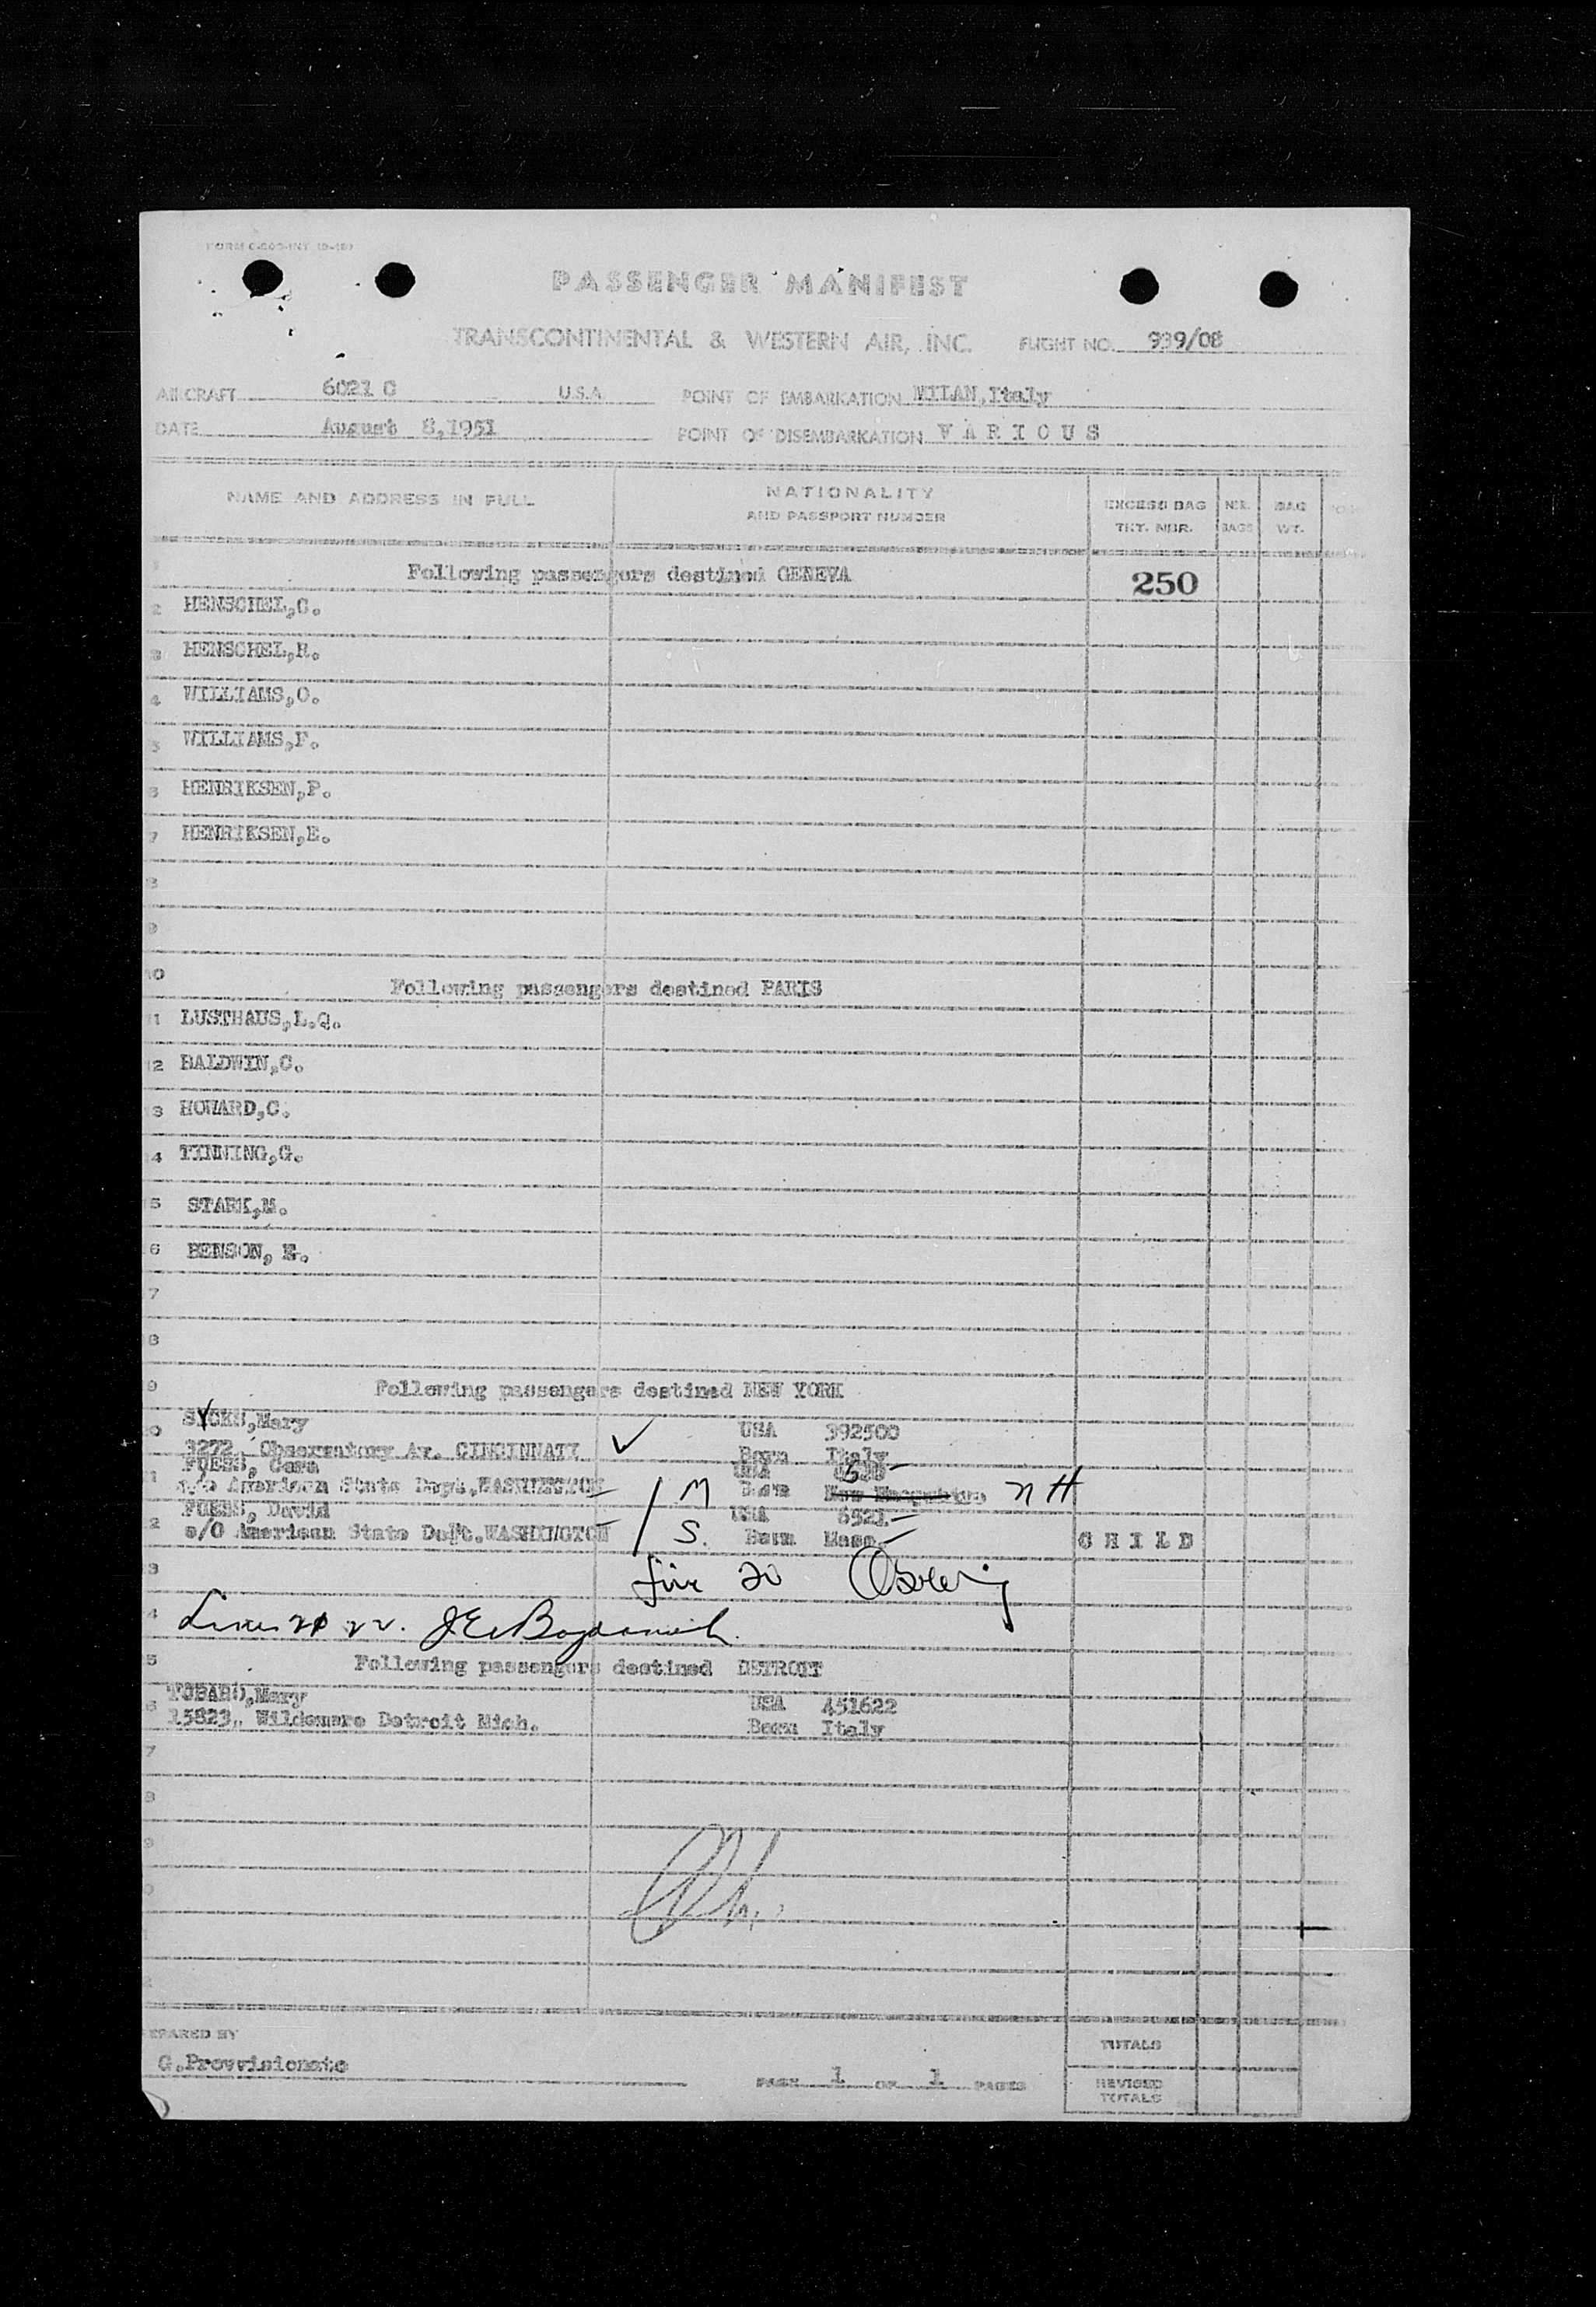 PASSENGER MANIFEST
TRANSCONTINENTAL & WESTERN AIR, INC. FLIGHT NO. 939/08
AIRCRAFT 6021 C U.S.A. POINT OF EMBARKATION MILAN,Italy
DATE August 8,1951 POINT OF DISEMBARKATION V A R I O U S
NAME AND ADDRESS IN FULL NATIONALITY AND PASSPORT NUMBER EXCESS BAG TKT. NBR. NBR. BAGS BAG WT.
1 Following passengers destined GENEVA 250
2 HENSCHEL,C.
3 HENSCHEL,R.
4 WILLIAMS,O.
5 WILLIAMS,F.
6 HENRIKSEN,P.
7 HENRIKSEN,E.
8
9
10 Following passengers destined PARIS
11 LUSTHAUS,L.Q.
12 BALDWIN,C.
3 HOWARD,C.
4 TINNING,G.
5 STARK,M.
6 BENSON, E.
7
8
9 Following passengers destined NEW YORK
0 Mary USA 392500
3272, Observatory Av. CINCINNATI Born Italy
1 USA 5
c/o American State Dept.,WASHINGTON M Born New Hampshire N H
David USA 6521
2 c/O American State Dept.WASHINGTON S. Born Mass. C H I L D
3 20
4 Lines 21 22. J E Bogdanich
5 Following passengers destined DETROIT
Mary USA 451622
6 15823, Wildemere Detroit Mich. Born Italy
7
8
9
0
PREPARED BY
G.Provvisionato
PAGE 1 OF 1 PAGES
TOTALS
REVISED TOTALS